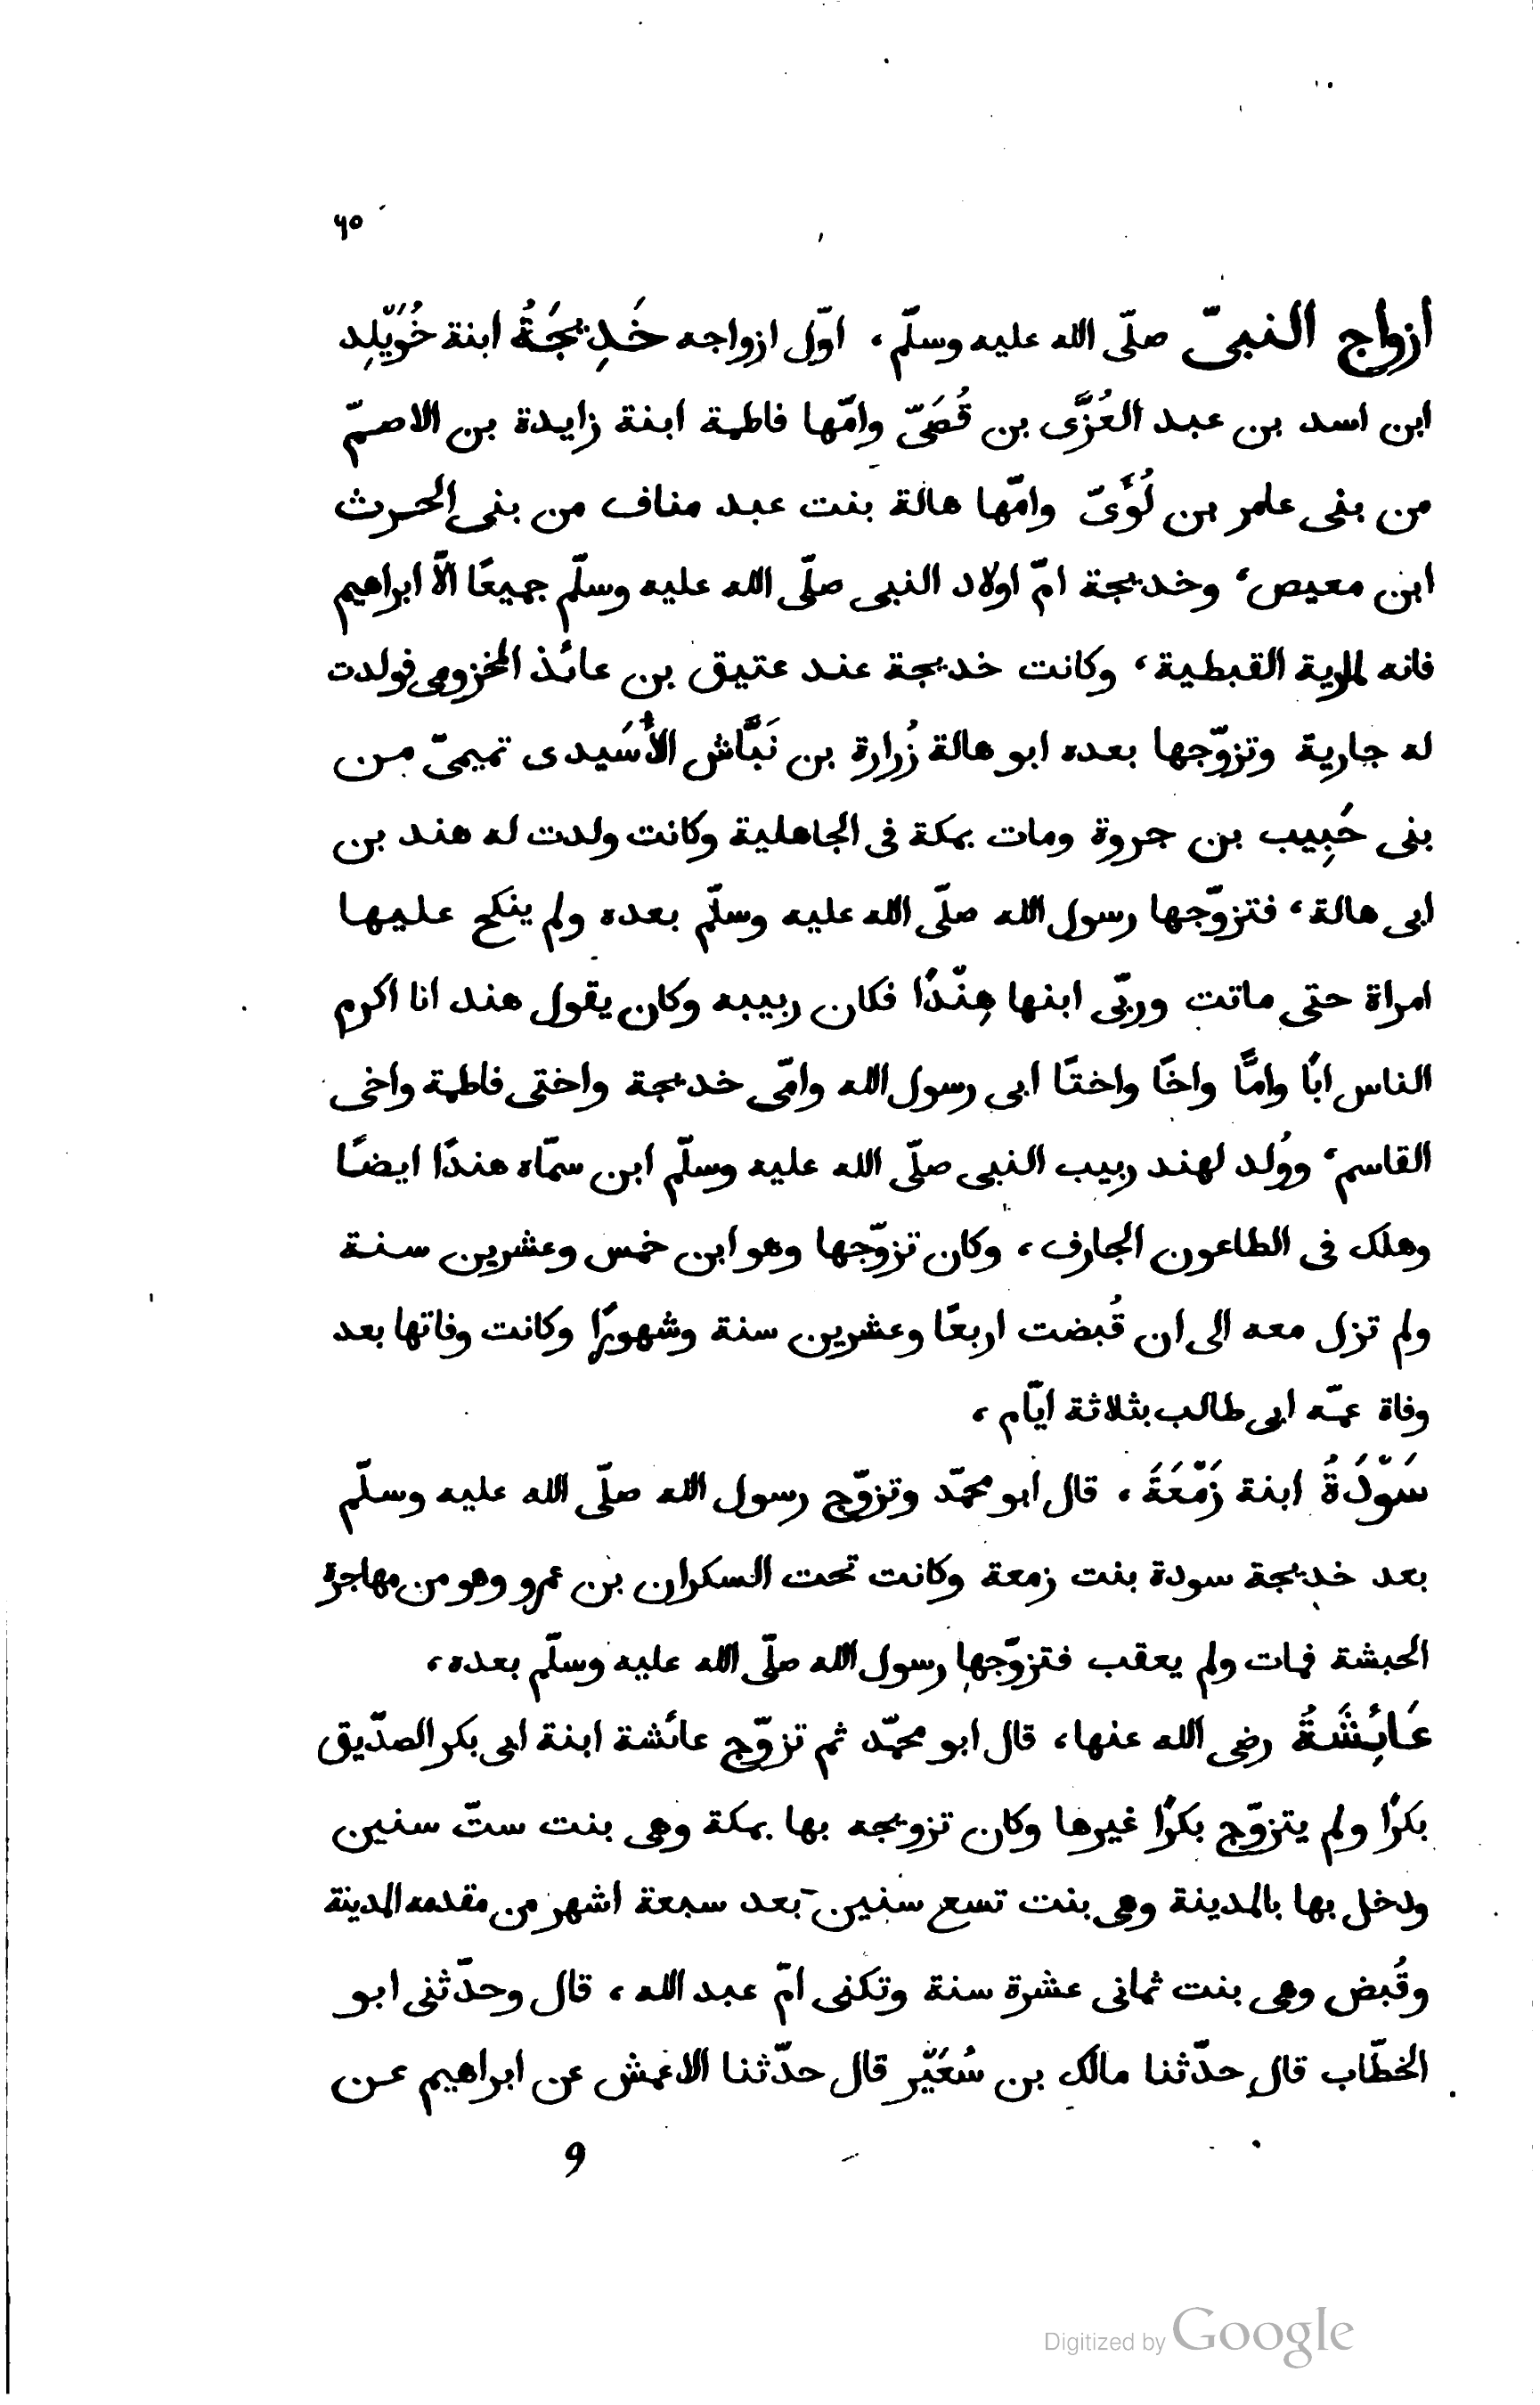 ٦٥
ازواج النبىّ صلّى الله عليه وسلّم، اوّل ازواجه خَدِيجَةُ ابنة خُوَيْلِد
ابن اسد بن عبد العُزَّى بن قُصَىّ وامّها فاطمة ابنة زايدة بن الاصمّ
من بنى عامر بن لُؤَىّ وامّها هالة بنت عبد مناف من بنى الحرث
ابن معيص، وخديجة امّ اولاد النبى صلّى الله عليه وسلّم جميعًا الّا ابراهيم
فانه لمارية القبطية، وكانت خديجة عند عتيق بن عائذ المخزومى فولدت
له جارية وتزوّجها بعده ابو هالة زُرارة بن نَبَّاش الأُسَيدى تميمىّ من
بنى حَبِيب بن جروة ومات بمكة فى الجاهلية وكانت ولدت له هند بن
ابى هالة، فتزوّجها رسول الله صلّى الله عليه وسلّم بعده ولم ينكح عليها
امراة حتى ماتت وربّى ابنها هِنْدًا فكان ربيبه وكان يقول هند انا اكرم
الناس ابًا وامًّا واخًا واختًا ابى رسول الله وامّى خديجة واختى فاطمة واخى
القاسم، ووُلد لهند ربيب النبى صلّى الله عليه وسلّم ابن سمّاه هندًا ايضًا
وهلك فى الطاعون الجارف، وكان تزوّجها وهو ابن خمس وعشرين سنة
ولم تزل معه الى ان قُبضت اربعًا وعشرين سنة وشهورًا وكانت وفاتها بعد
وفاة عمّه ابى طالب بثلاثة ايّام،
سَوْدَةُ ابنة زَمْعَةَ، قال ابو محمّد وتزوّج رسول الله صلّى الله عليه وسلّم
بعد خديجة سودة بنت زمعة وكانت تحت السكران بن عمرو وهو من مهاجرة
الحبشة فمات ولم يعقب فتزوّجها رسول الله صلّى الله عليه وسلّم بعده،
عَائِشَةُ رضى الله عنها، قال ابو محمّد ثم تزوّج عائشة ابنة ابى بكر الصدّيق
بكرًا ولم يتزوّج بكرًا غيرها وكان تزويجه بها بمكة وهى بنت ستّ سنين
ودخل بها بالمدينة وهى بنت تسع سنين بعد سبعة اشهر من مقدمه المدينة
وقُبض وهى بنت ثمانى عشرة سنة وتكنى امّ عبد الله، قال وحدّثنى ابو
الخطّاب قال حدّثنا مالك بن سُعَيْر قال حدّثنا الاعمش عن ابراهيم عن
9
Digitized by Google